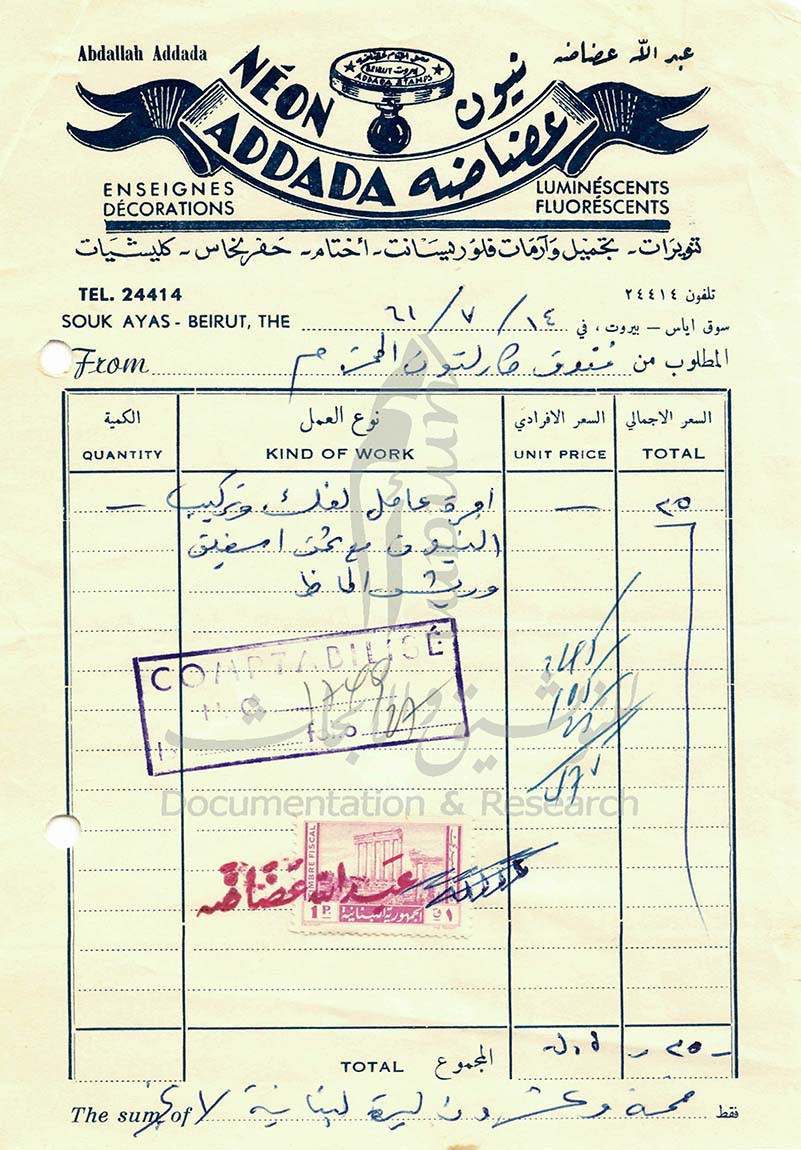 Abdallah Addada
عبد الله عضاضه
NÉON
نيون
BEIRUT بيروت
ADDADA STAMPS
ADDADA عضاضه
ENSEIGNES
DÉCORATIONS
LUMINÉSCENTS
FLUORÉSCENTS
تنويرات - تجميل وآرمات فلوريسانت - أختام - حفر نحاس - كليشيات
TEL. 24414
تلفون ٢٤٤١٤
SOUK AYAS - BEIRUT, THE
سوق اياس – بيروت ، في ١٤ / ٧ / ٦١
From
المطلوب من فندق كارلتون المحترم
الكمية نوع العمل السعر الافرادي السعر الاجمالي
QUANTITY KIND OF WORK UNIT PRICE TOTAL
— اجرة عامل لفك وتركيب — ٢٥
النيون مع
COMPTABILISÉ
1748
folio 27
Documentation & Research
TIMBRE FISCAL
عبد الله عضاضه
1 P. الجمهورية اللبنانية ١ ق
TOTAL المجموع ل.ل - ٢٥ -
The sum of خمسة وعشرون ليرة لبنانية لا غير فقط